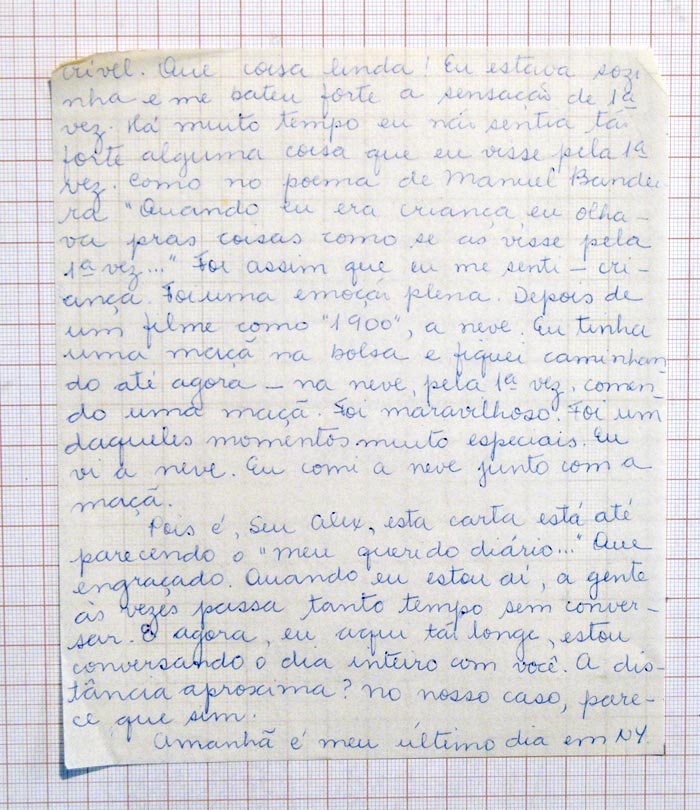 crível. Que coisa linda! Eu estava sozi
nha e me bateu forte a sensação de 1ª
vez. Há muito tempo eu não sentia tão
forte alguma coisa que eu visse pela 1ª
vez. Como no poema de Manuel Bandei
ra "Quando eu era criança eu olha-
va pras coisas como se as visse pela
1ª vez..." Foi assim que eu me senti - cri-
ança. Foi uma emoção plena. Depois de
um filme como "1900", a neve. Eu tinha
uma maçã na bolsa e fiquei caminhan
do até agora - na neve, pela 1ª vez, comen-
do uma maçã. Foi maravilhoso. Foi um
daqueles momentos muito especiais. Eu
vi a neve. Eu comi a neve junto com a
maçã.
Pois é, Seu Alex, esta carta está até
parecendo o "meu querido diário..." Que
engraçado. Quando eu estou aí, a gente
às vezes passa tanto tempo sem conver-
sar. E agora, eu aqui tão longe, estou
conversando o dia inteiro com você. A dis-
tância aproxima? No nosso caso, pare-
ce que sim.
Amanhã é meu último dia em NY.